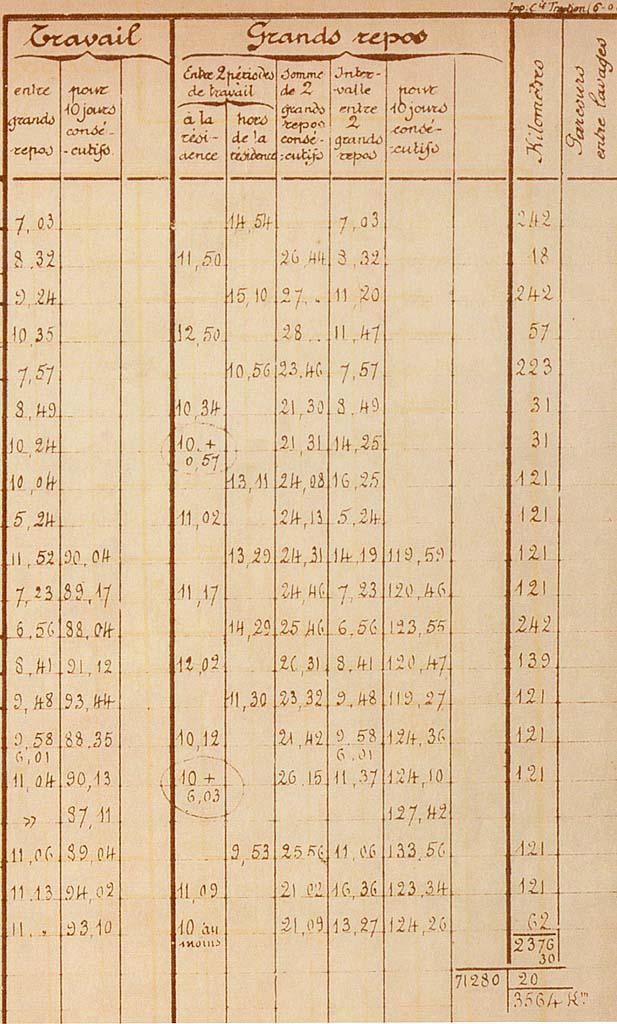 Imp. Cie Traction (6-0
Travail
Grands repos
Kilomètres
Parcours entre lavages
entre grands repos
pour 10 jours consé-cutifs
Entre 2 périodes de travail
à la rési-dence
hors de la résidence
Somme de 2 grands repos consé-cutifs
Inter-valle entre 2 grands repos
pour 10 jours consé-cutifs
7,03 14,54 7,03 242
8.32 11,50 26,44 8,32 18
9,24 15,10 27,. 11,20 242
10,35 12,50 28 .. 11,47 57
7,57 10,56 23,46 7,57 223
8,49 10,34 21,30 8,49 31
10,24 10,+ 0,57 21,31 14,25 31
10,04 13,11 24,08 16,25 121
5,24 11,02 24,13 5,24 121
11,52 90,04 13,29 24,31 14,19 119,59 121
7,23 89,17 11,17 24,46 7,23 120,46 121
6,56 88,04 14,29 25,46 6,56 123,55 242
8,41 91,12 12,02 26,31 8,41 120,47 139
9,48 93,44 11,30 23,32 9,48 119,27 121
9,58 88.35 10,12 21,42 9.58 124,36 121
6,01 6,01
11,04 90,13 10 + 6,03 26.15 11,37 124,10 121
» 87,11 127,42
11,06 89,04 9,53 25 56 11,06 133,56 121
11.13 94,02 11,09 21 02 16,36 123,34 121
11 .. 93,10 10 au moins 21,09 13,27 124,26 62
2376
30
71280 20
3564 Km